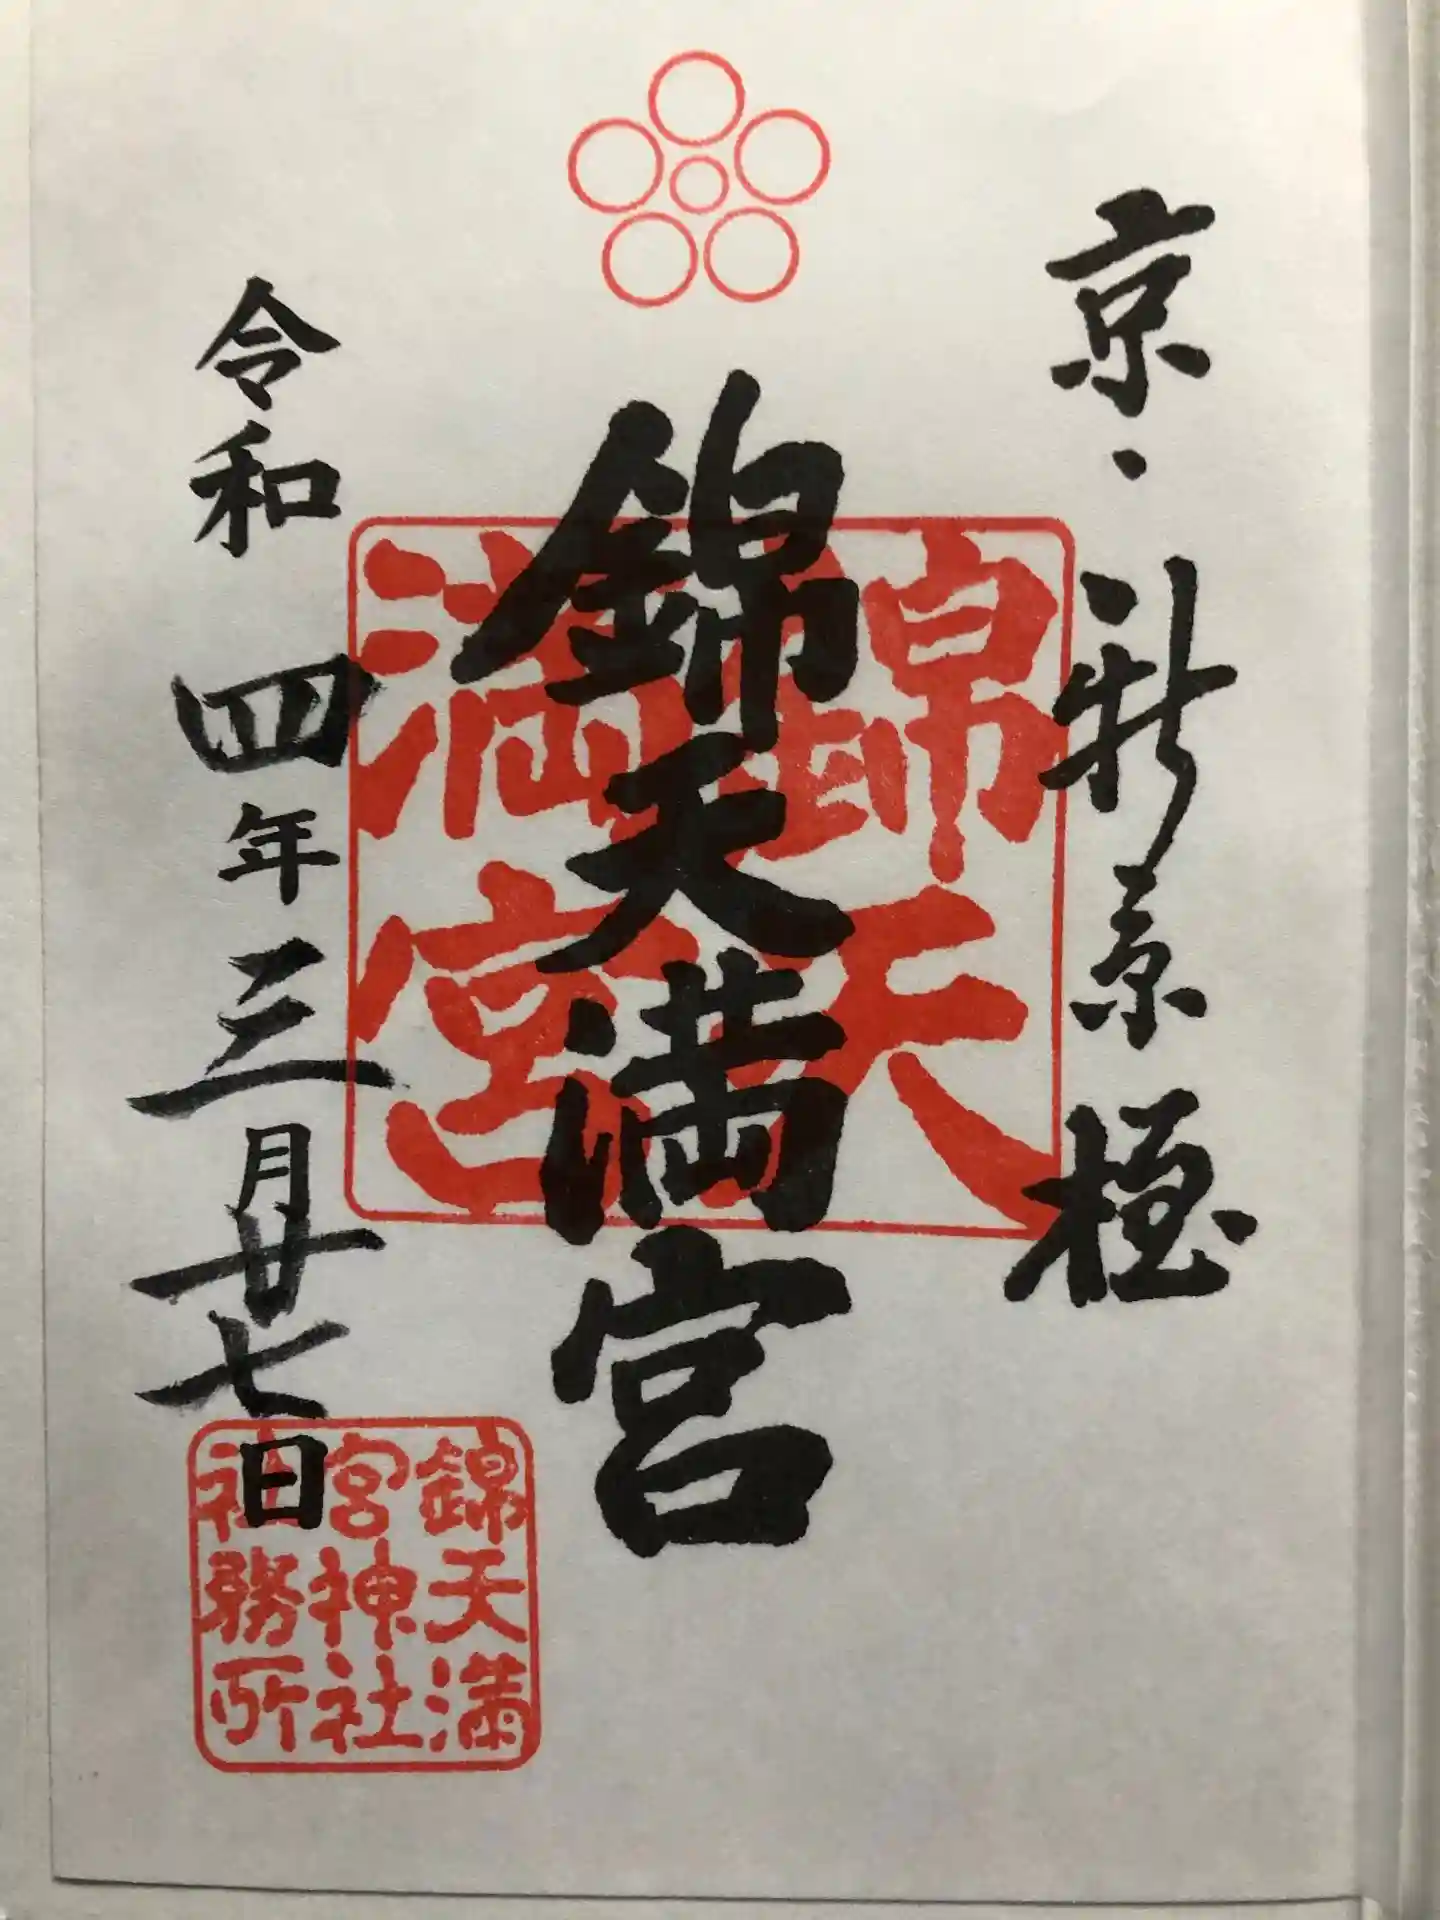 京・新京極
錦天満宮
錦天
満宮
令和四年三月廿七日
錦天満
宮神社
社務所